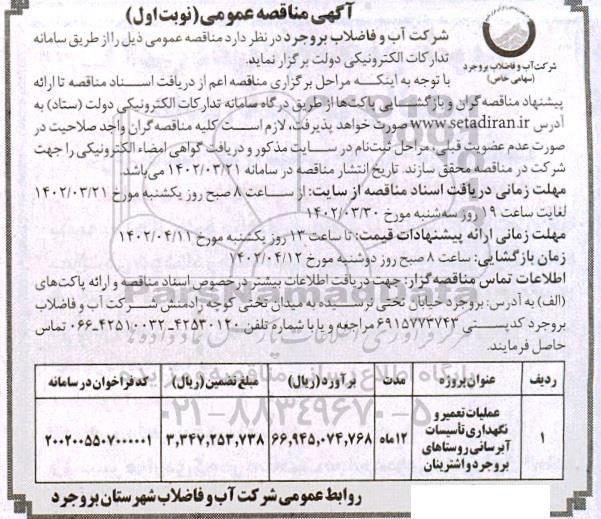 آگهی مناقصه عمومی (نوبت اول)
شرکت آب و فاضلاب بروجرد
(سهامی خاص)
شرکت آب و فاضلاب بروجرد در نظر دارد مناقصه عمومی ذیل را از طریق سامانه
تدارکات الکترونیکی دولت برگزار نماید.
با توجه به اینکه مراحل برگزاری مناقصه اعم از دریافت اسناد مناقصه تا ارائه
پیشنهاد مناقصه گران و بازگشایی پاکت‌ها از طریق درگاه سامانه تدارکات الکترونیکی دولت (ستاد) به
آدرس www.setadiran.ir صورت خواهد پذیرفت، لازم است کلیه مناقصه گران واجد صلاحیت در
صورت عدم عضویت قبلی، مراحل ثبت‌نام در سایت مذکور و دریافت گواهی امضاء الکترونیکی را جهت
شرکت در مناقصه محقق سازند. تاریخ انتشار مناقصه در سامانه ۱۴۰۲/۰۳/۲۱ می‌باشد.
مهلت زمانی دریافت اسناد مناقصه از سایت: از ساعت ۸ صبح روز یکشنبه مورخ ۱۴۰۲/۰۳/۲۱
لغایت ساعت ۱۹ روز سه‌شنبه مورخ ۱۴۰۲/۰۳/۳۰
مهلت زمانی ارائه پیشنهادات قیمت: تا ساعت ۱۳ روز یکشنبه مورخ ۱۴۰۲/۰۴/۱۱
زمان بازگشایی: ساعت ۸ صبح روز دوشنبه مورخ ۱۴۰۲/۰۴/۱۲
اطلاعات تماس مناقصه‌گزار: جهت دریافت اطلاعات بیشتر در خصوص اسناد مناقصه و ارائه پاکت‌های
(الف) به آدرس: بروجرد خیابان تختی نرسیده به میدان تختی کوچه رادمنش شرکت آب و فاضلاب
بروجرد کدپستی ۶۹۱۵۷۷۳۷۴۳ مراجعه و یا با شماره تلفن ۴۲۵۳۰۱۲۰-۴۲۵۱۰۰۳۲-۰۶۶ تماس
حاصل فرمایند.
ردیف عنوان پروژه مدت برآورد (ریال) مبلغ تضمین (ریال) کد فراخوان در سامانه
عملیات تعمیر و
نگهداری تأسیسات
۱ آبرسانی روستاهای ۱۲ماه ۶۶,۹۴۵,۰۷۴,۷۶۸ ۳,۳۴۷,۲۵۳,۷۳۸ ۲۰۰۲۰۰۵۵۰۷۰۰۰۰۰۱
بروجرد و اشترینان
روابط عمومی شرکت آب و فاضلاب شهرستان بروجرد
ParsNamadData
پایگاه اطلاع رسانی مناقصه و مزایده
۰۲۱-۸۸۳۴۹۶۷۰-۵